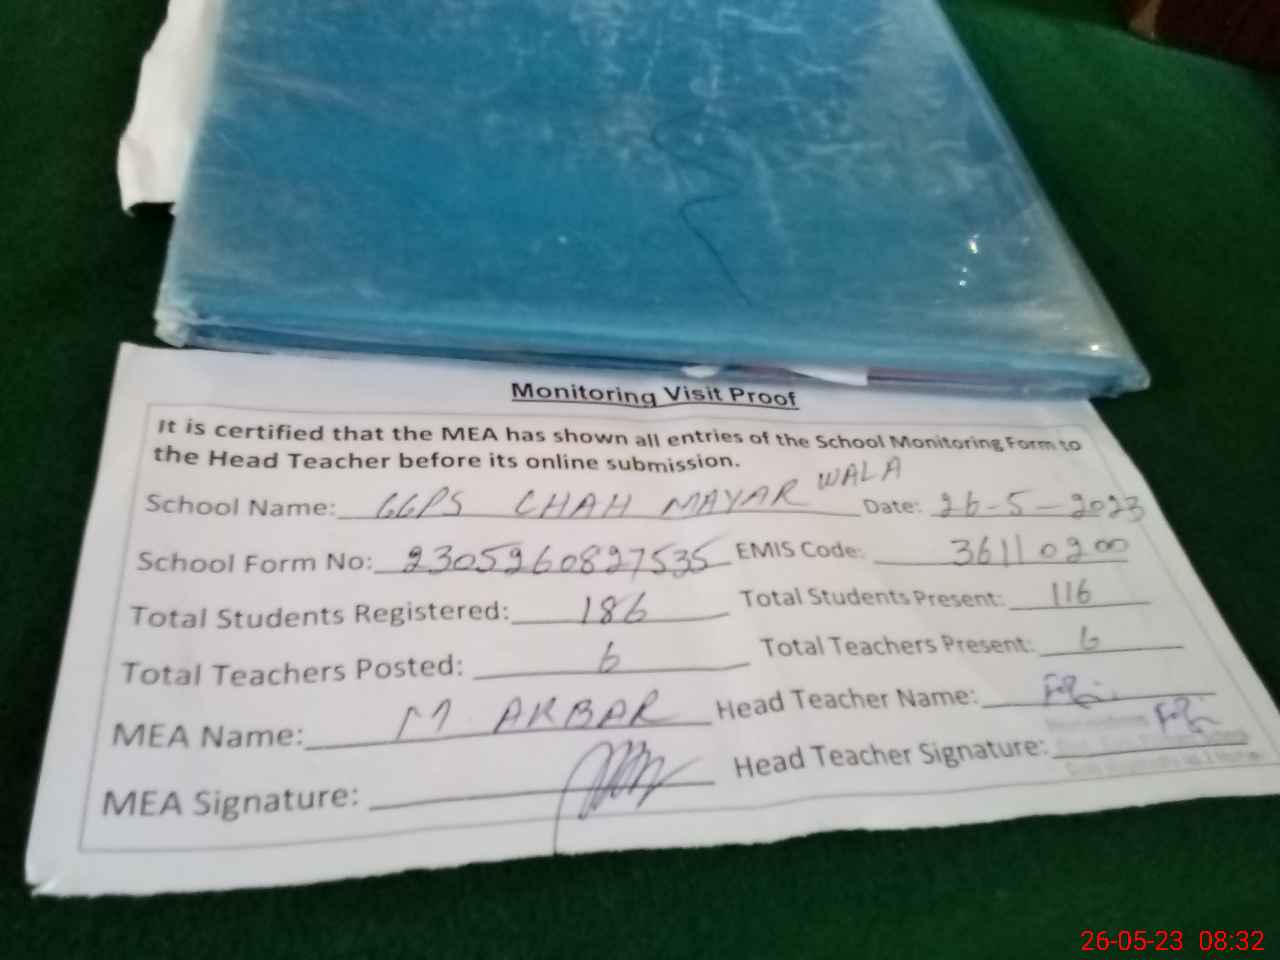 Monitoring Visit Proof
It is certified that the MEA has shown all entries of the School Monitoring Form to
the Head Teacher before its online submission.
School Name: GGPS CHAH MAYAR WALA Date: 26-5-2023
School Form No: 2305260827535 EMIS Code: 36110200
Total Students Registered: 186 Total Students Present: 116
Total Teachers Posted: 6 Total Teachers Present: 6
MEA Name: M. AKBAR Head Teacher Name:
MEA Signature: Head Teacher Signature:
26-05-23 08:32